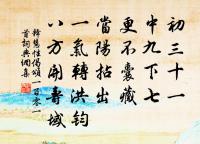 初三十一
中九下七
更不囊藏
當陽拈出
一氣轉洪鈞
八方開壽域
釋慧性偈頌一百零一
首詞典網集